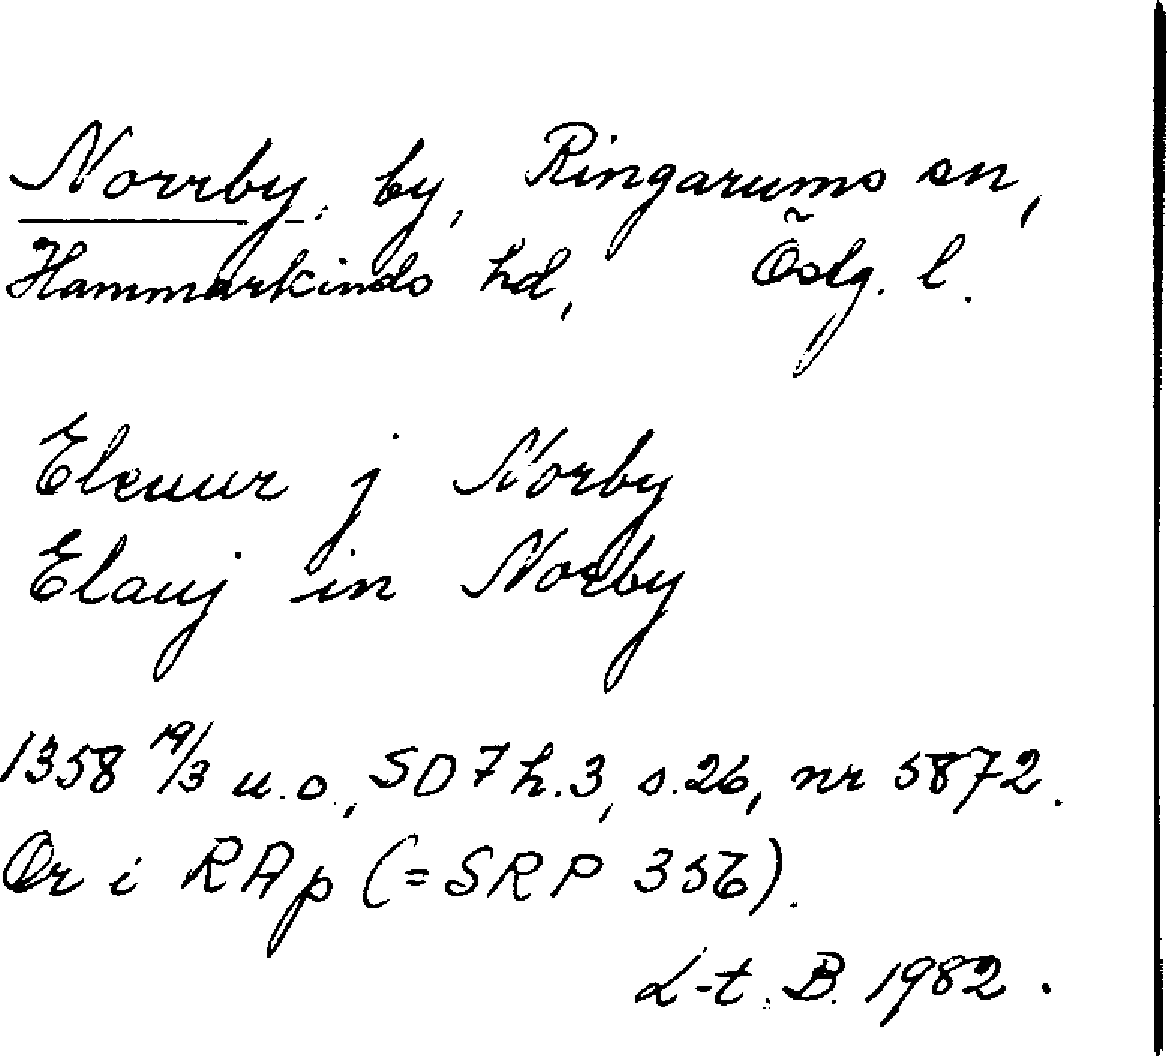 Norrby, by, Ringarums sn,
Hammarkinds hd, Östg. l.
Elevur j Norby
Elauj in Norby
1358 19/3 u.o., SD 7 h.3, s.26, nr 5872.
Or i RAp (=SRP 356).
L-t. B. 1982.